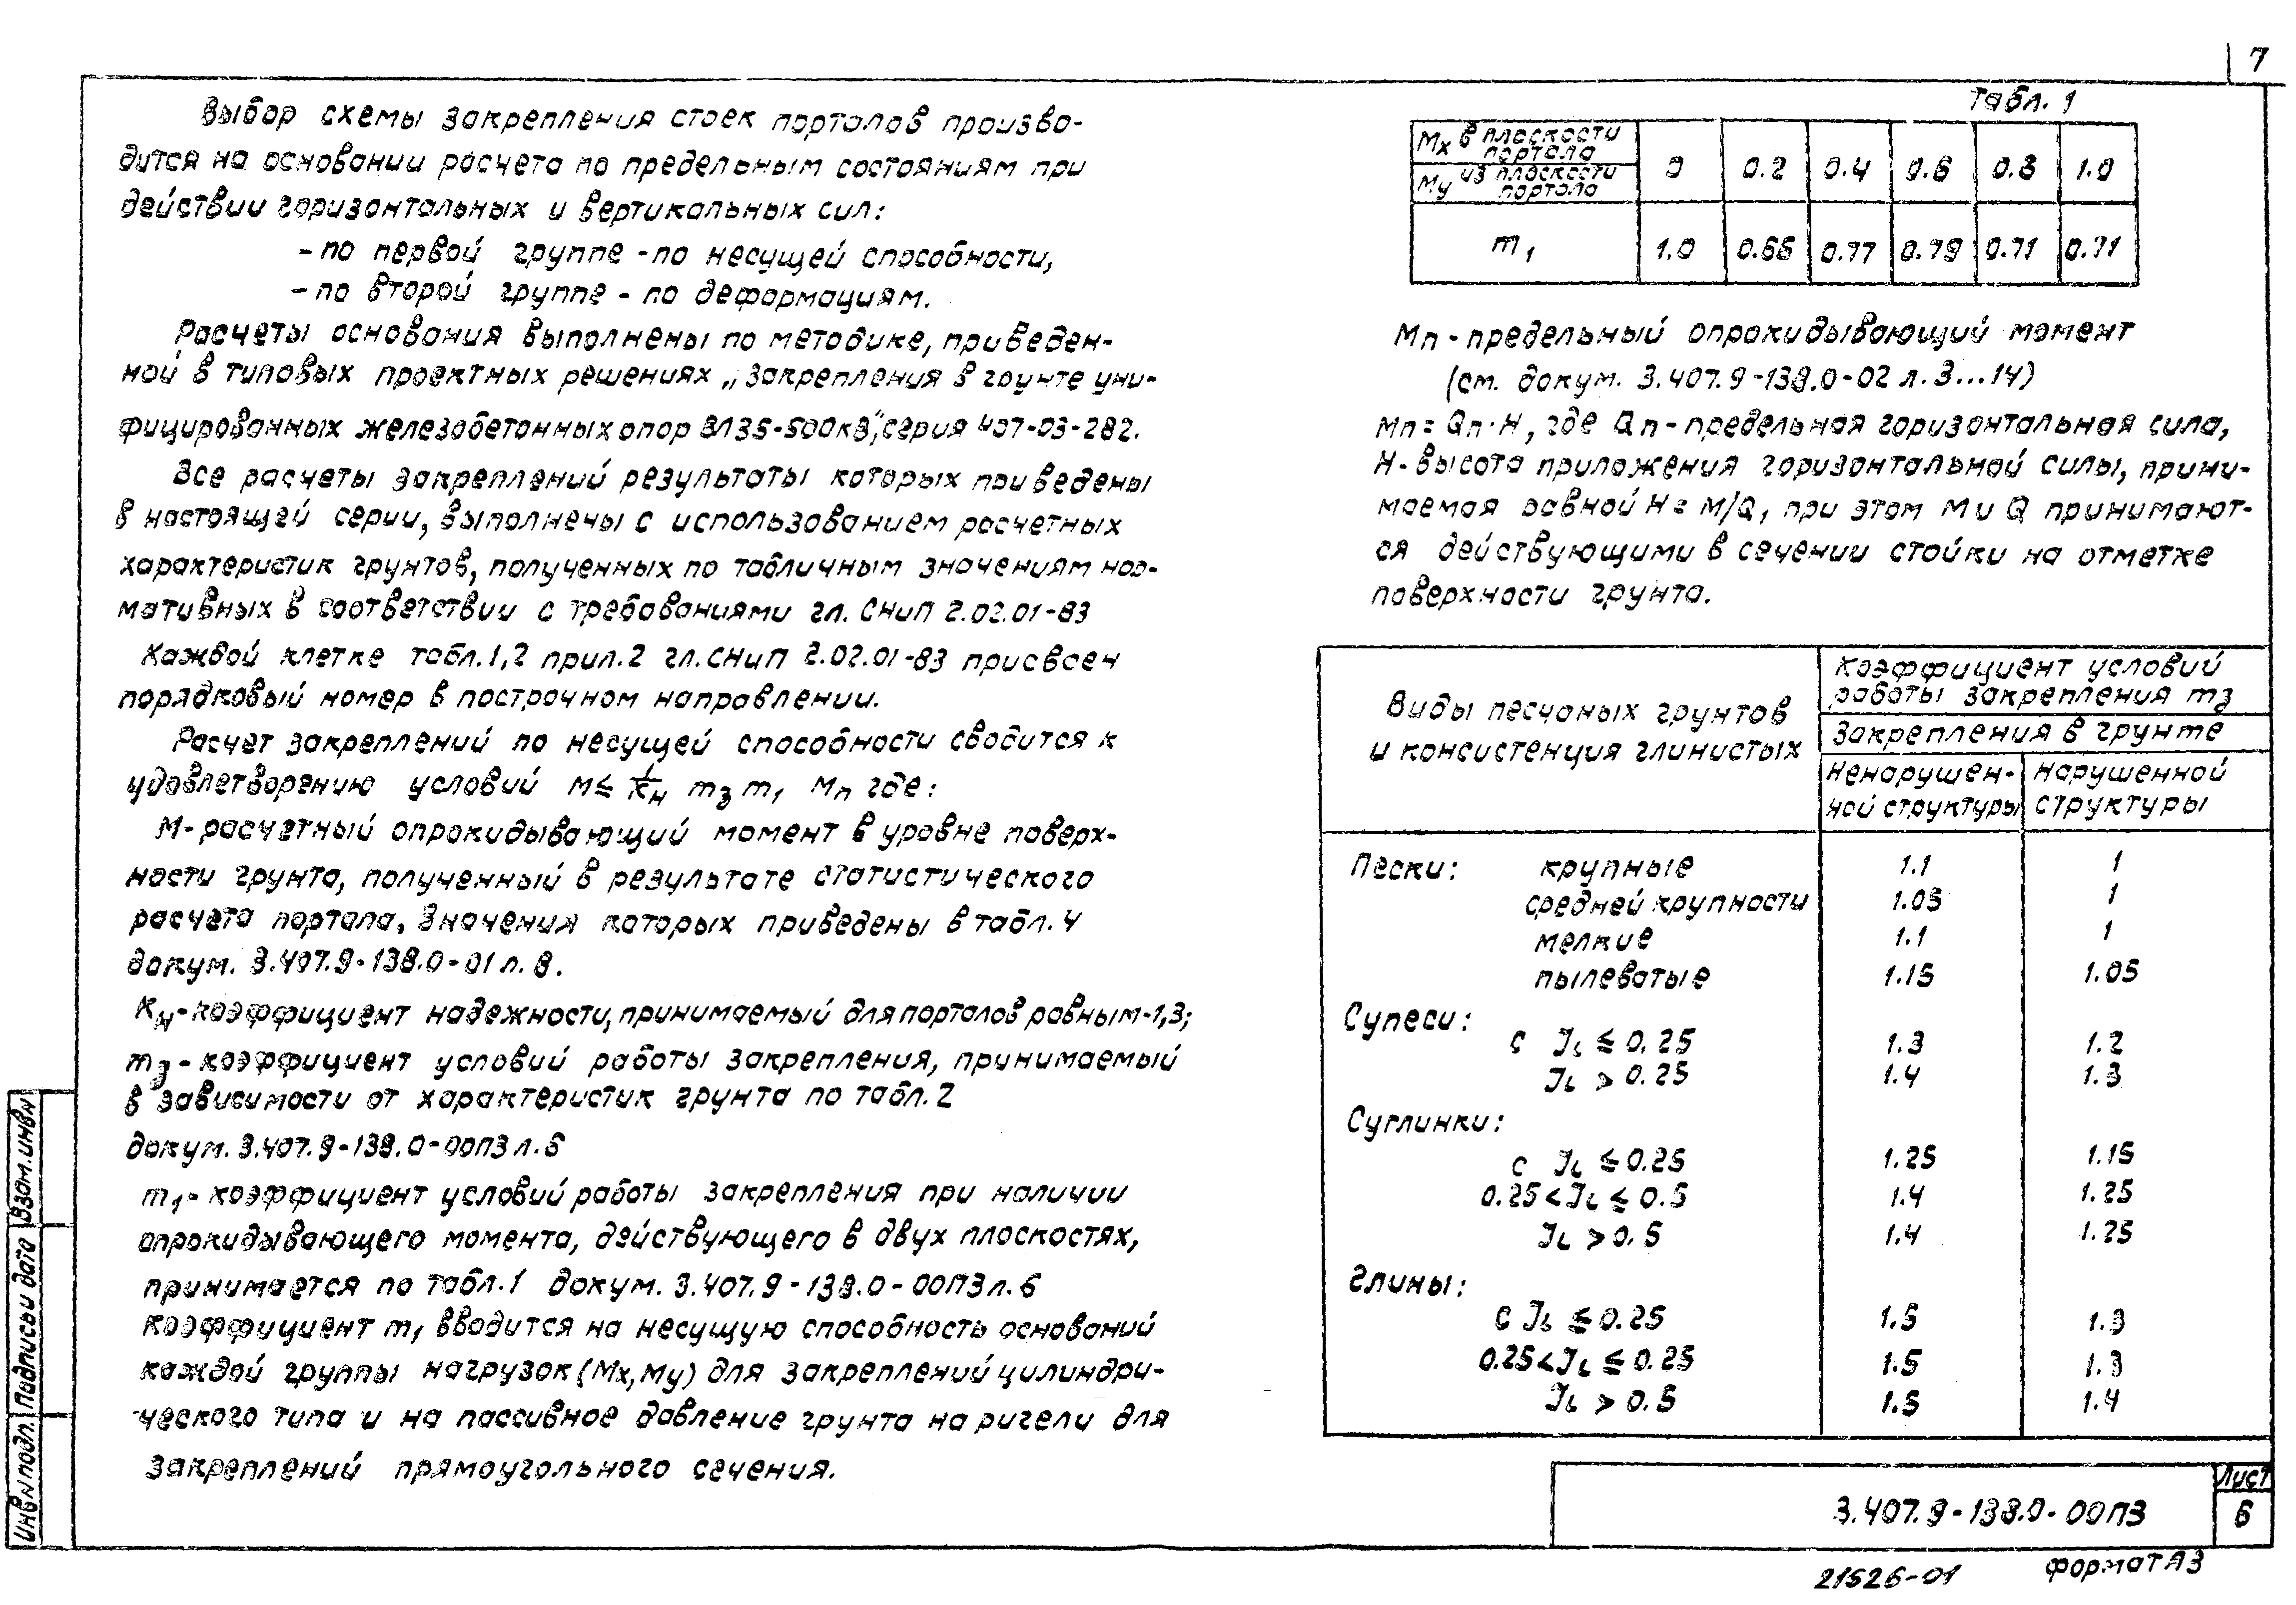 7
Выбор схемы закрепления стоек порталов произво-
дится на основании расчета по предельным состояниям при
действии горизонтальных и вертикальных сил:
- по первой группе - по несущей способности,
- по второй группе - по деформациям.
Расчеты основания выполнены по методике, приведен-
ной в типовых проектных решениях „Закрепления в грунте уни-
фицированных железобетонных опор ВЛ35-500кВ", серия 407-03-282.
Все расчеты закреплений результаты которых приведены
в настоящей серии, выполнены с использованием расчетных
характеристик грунтов, полученных по табличным значениям нор-
мативных в соответствии с требованиями гл. СНиП 2.02.01-83
Каждой клетке табл.1,2 прил.2 гл.СНиП 2.02.01-83 присвоен
порядковый номер в построчном направлении.
Расчет закреплений по несущей способности сводится к
удовлетворению условий М ≤ 1/Kн mз m1 Мп где:
М-расчетный опрокидывающий момент в уровне поверх-
ности грунта, полученный в результате статистического
расчета портала, значения которых приведены в табл. 4
докум. 3.407.9-138.0-01 л. 8.
Kн-коэффициент надежности, принимаемый для порталов равным-1,3;
mз - коэффициент условий работы закрепления, принимаемый
в зависимости от характеристик грунта по табл. 2
докум. 3.407.9-138.0-00ПЗ л. 6
m1 - коэффициент условий работы закрепления при наличии
опрокидывающего момента, действующего в двух плоскостях,
принимается по табл.1 докум. 3.407.9-138.0-00ПЗ л. 6
Коэффициент m1 вводится на несущую способность оснований
каждой группы нагрузок (Мх, Му) для закреплений цилиндри-
ческого типа и на пассивное давление грунта на ригели для
закреплений прямоугольного сечения.
Табл. 1
Мх в плоскости портала
Му из плоскости портала
0 0.2 0.4 0.6 0.8 1.0
m1 1.0 0.77 0.79 0.71 0.71
Мп - предельный опрокидывающий момент
(см. докум. 3.407.9-138.0-02 л. 3...14)
Мп = Qп·Н, где Qп - предельная горизонтальная сила,
Н - высота приложения горизонтальной силы, прини-
маемая равной Н = М/Q, при этом М и Q принимают-
ся действующими в сечении стойки на отметке
поверхности грунта.
Виды песчаных грунтов
и консистенция глинистых
Коэффициент условий
работы закрепления mз
Закрепления в грунте
Ненарушен-
ной структуры
Нарушенной
структуры
Пески: крупные 1.1 1
средней крупности 1.05 1
мелкие 1.1 1
пылеватые 1.15 1.05
Супеси:
с JL ≤ 0.25 1.3 1.2
JL > 0.25 1.4 1.3
Суглинки:
с JL ≤ 0.25 1.25 1.15
0.25 < JL ≤ 0.5 1.4 1.25
JL > 0.5 1.4 1.25
Глины:
с JL ≤ 0.25 1.5 1.3
0.25 < JL ≤ 0.25 1.5 1.3
JL > 0.5 1.5 1.4
3.407.9-138.0-00ПЗ
Лист
6
21526-01
Формат А3
Инв N подл. Подпись и дата Взам. инв N